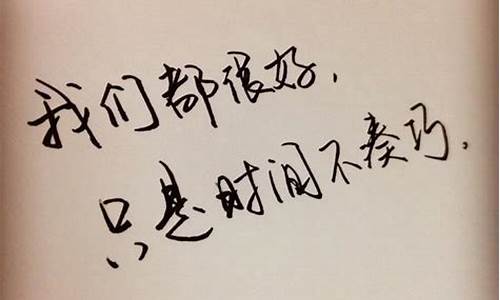 我们都很好，
只是时间不奏巧，